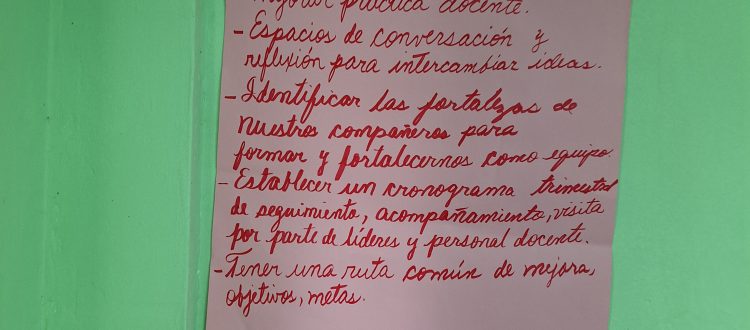 mejorar práctica docente.
- Espacios de conversación y
reflexión para intercambiar ideas.
- Identificar las fortalezas de
nuestros compañeros para
formar y fortalecernos como equipo.
- Establecer un cronograma trimestral
de seguimiento, acompañamiento, visita
por parte de líderes y personal docente.
- Tener una ruta común de mejora,
objetivos, metas.